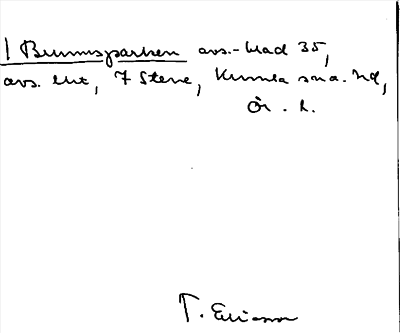 / Brunnsparken avs.-blad 35,
avs. utt, 7 Stene, Kumla sn o. hd,
Ör. l.
T. Ericsson